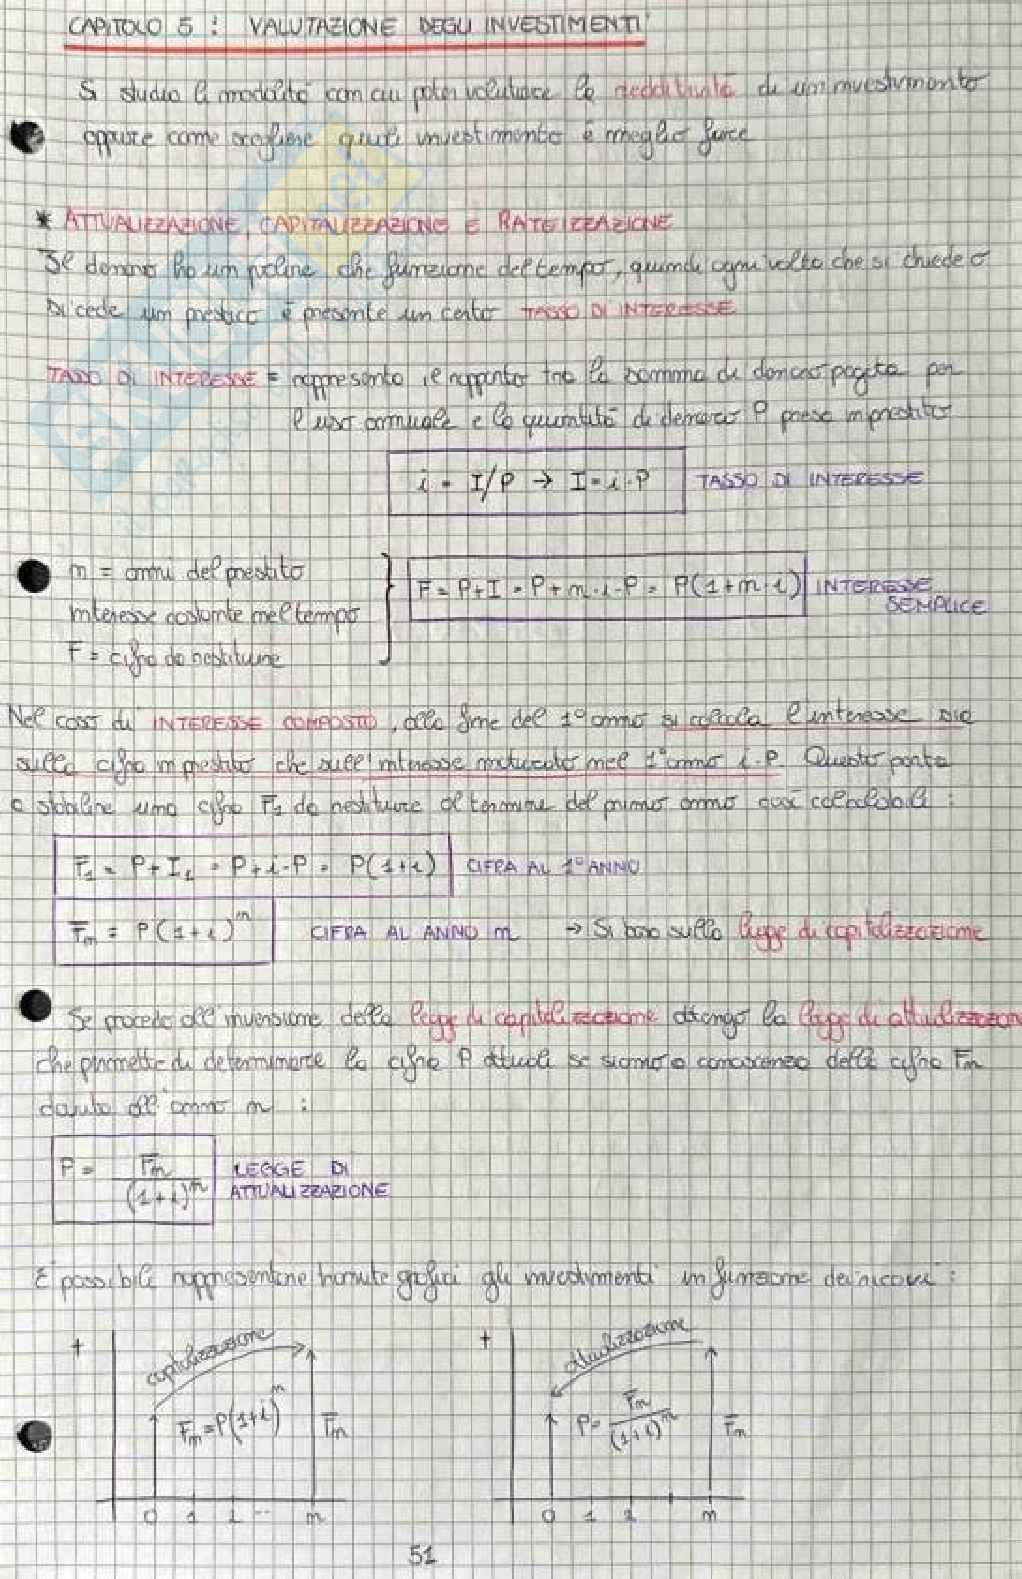 CAPITOLO 5 : VALUTAZIONE DEGLI INVESTIMENTI
Si studia le modalità con cui poter valutare la redditività di un investimento
oppure come scegliere quale investimento è meglio fare
* ATTUALIZZAZIONE, CAPITALIZZAZIONE E RATEIZZAZIONE
Il denaro ha un valore che funzione del tempo, quindi ogni volta che si chiede o
si cede un prestito è presente un certo TASSO DI INTERESSE
TASSO DI INTERESSE = rappresenta il rapporto tra la somma di denaro pagata per
l'uso annuale e la quantità di denaro P presa in prestito
i = I/P → I = i·P TASSO DI INTERESSE
n = anni del prestito
interesse costante nel tempo
F = cifra da restituire
F = P+I = P+n·i·P = P(1+n·i) INTERESSE
SEMPLICE
Nel caso di INTERESSE COMPOSTO, alla fine del 1° anno si calcola l'interesse sia
sulla cifra in prestito che sull'interesse maturato nel 1° anno i·P. Questo porta
a stabilire una cifra F1 da restituire al termine del primo anno così calcolabile :
F1 = P+I1 = P+i·P = P(1+i) CIFRA AL 1° ANNO
Fn = P(1+i)^n CIFRA AL ANNO n → Si basa sulla legge di capitalizzazione
Se procedo all'inversione della legge di capitalizzazione ottengo la legge di attualizzazione
che permette di determinare la cifra P attuale se siamo a conoscenza della cifra Fn
dovuta all'anno n :
P = Fn/(1+i)^n LEGGE DI
ATTUALIZZAZIONE
È possibile rappresentare tramite grafici gli investimenti in funzione dei ricavi :
+ capitalizzazione
Fn = P(1+i)^n Fn
0 1 2 ... n
+ attualizzazione
P = Fn/(1+i)^n Fn
0 1 2 n
51